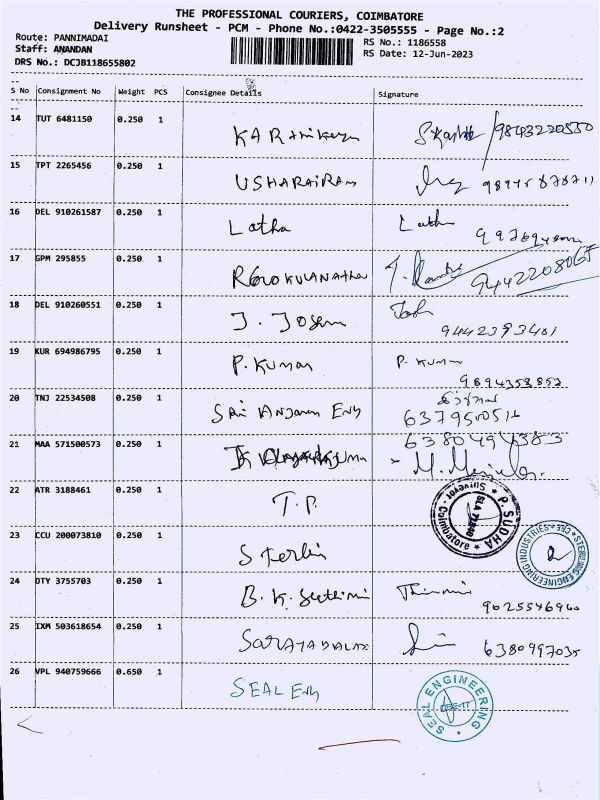 THE PROFESSIONAL COURIERS, COIMBATORE
Delivery Runsheet - PCM - Phone No.:0422-3505555 - Page No.:2
Route: PANNIMADAI
Staff: ANANDAN
DRS No.: DCJB118655802
RS No.: 1186558
RS Date: 12-Jun-2023
S No Consignment No Weight PCS Consignee Details Signature
14 TUT 6481150 0.250 1 KARthikeyn 9843220550
15 TPT 2265456 0.250 1 USHARAIRAM
16 DEL 910261587 0.250 1 Latha Latha
17 GPM 295855 0.250 1 RGOKULANATHAN 9442208067
18 DEL 910260551 0.250 1 J. Josem 9442393401
19 KUR 694986795 0.250 1 P. Kumar P. Kumar
9894353852
20 TNJ 22534508 0.250 1 Sri Anjanen Eng
21 MAA 571500573 0.250 1 6380494383
22 ATR 3188461 0.250 1 T.P. P. SUDHA Surveyor - Coimbatore
23 CCU 200073810 0.250 1 Sterlin STERLING ENGINEERING INDUSTRIES CBE
24 OTY 3755703 0.250 1 B.K.
9025546960
25 IXM 503618654 0.250 1 6380997035
26 VPL 940759666 0.650 1 SEAL Eng SEAL ENGINEERING CBE-17